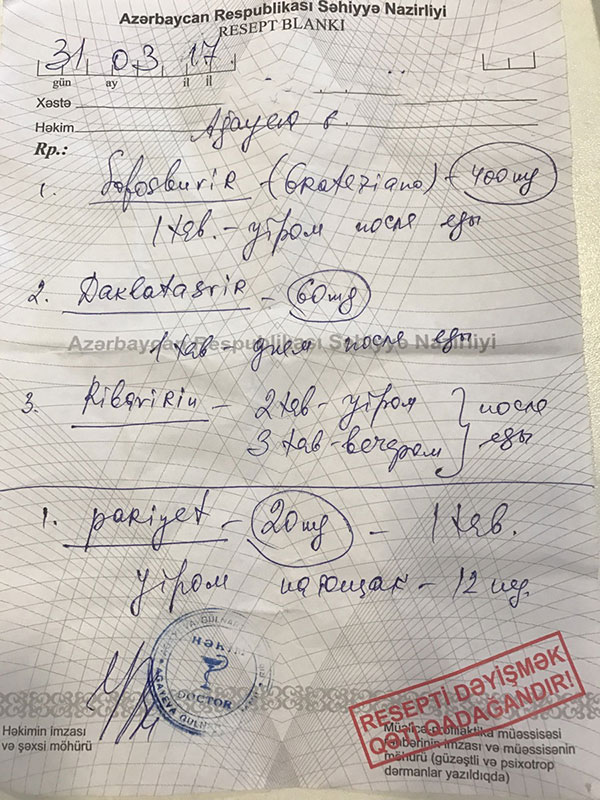 Azərbaycan Respublikası Səhiyyə Nazirliyi
RESEPT BLANKI
31 03 17
gün ay il il
Xəstə
Həkim Ağayeva
Rp.:
1. Sofosbuvir (Grateziano) - 400mg
1 tab. - утром после еды
2. Daklatasvir - 60mg
Azərbaycan Respublikası Səhiyyə Nazirliyi
1 tab днем после еды
3. Ribavirin - 2 tab - утром } после
3 tab - вечером } еды
1. pariyet - 20mg - 1 tab.
утром натощак - 12 нед.
HƏKİM
DOCTOR
Həkimin imzası
və şəxsi möhürü
RESEPTİ DƏYİŞMƏK
QƏTİ QADAĞANDIR!
Müalicə-profilaktika müəssisəsi
rəhbərinin imzası və müəssisənin
möhürü (güzəştli və psixotrop
dərmanlar yazıldıqda)